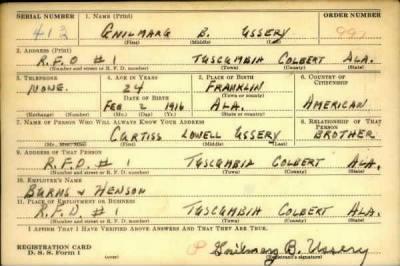 SERIAL NUMBER 1. NAME (Print) ORDER NUMBER
413 GHILMARG B. USSERY 991
(First) (Middle) (Last)
2. ADDRESS (Print)
R.F.D # 1 TUSCUMBIA COLBERT ALA.
(Number and street or R. F. D. number) (Town) (County) (State)
3. TELEPHONE 4. AGE IN YEARS 5. PLACE OF BIRTH 6. COUNTRY OF CITIZENSHIP
NONE. 24 FRANKLIN
DATE OF BIRTH (Town or county)
FEB 2 1916 ALA. AMERICAN
(Mo.) (Day) (Yr.) (State or country)
7. NAME OF PERSON WHO WILL ALWAYS KNOW YOUR ADDRESS 8. RELATIONSHIP OF THAT PERSON
CURTISS LOWELL USSERY BROTHER
(Mr., Mrs., Miss) (First) (Middle) (Last)
9. ADDRESS OF THAT PERSON
R.F.D. # 1 TUSCUMBIA COLBERT ALA.
(Number and street or R. F. D. number) (Town) (County) (State)
10. EMPLOYER'S NAME
BURNS & HENSON
11. PLACE OF EMPLOYMENT OR BUSINESS
R.F.D. #1 TUSCUMBIA COLBERT ALA.
(Number and street or R. F. D. number) (Town) (County) (State)
I AFFIRM THAT I HAVE VERIFIED ABOVE ANSWERS AND THAT THEY ARE TRUE.
REGISTRATION CARD
D. S. S. Form 1 (over) B. Ussery
(Registrant's signature)